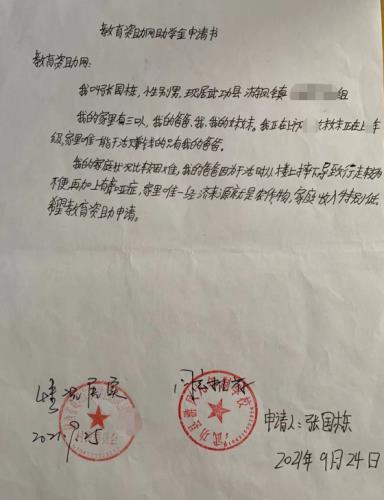 教育资助网助学金申请书
教育资助网:
我叫张国栋,性别男,现居武功县游凤镇 组
我的家里有三口人,我的爸爸、我、我的妹妹。我正在上初 妹妹正在上 年
级,家里唯一能干活赚钱的只有我的爸爸。
我的家庭状况比较困难,我的爸爸因为干活时从楼上摔下导致行走较为
不便再加上有 症,家里唯一经济来源就是农作物,家庭收入特别低。
希望教育资助申请。
情况属实
2021.9.25
情况属实
武功县游凤 学校
申请人:张国栋
2021年9月24日